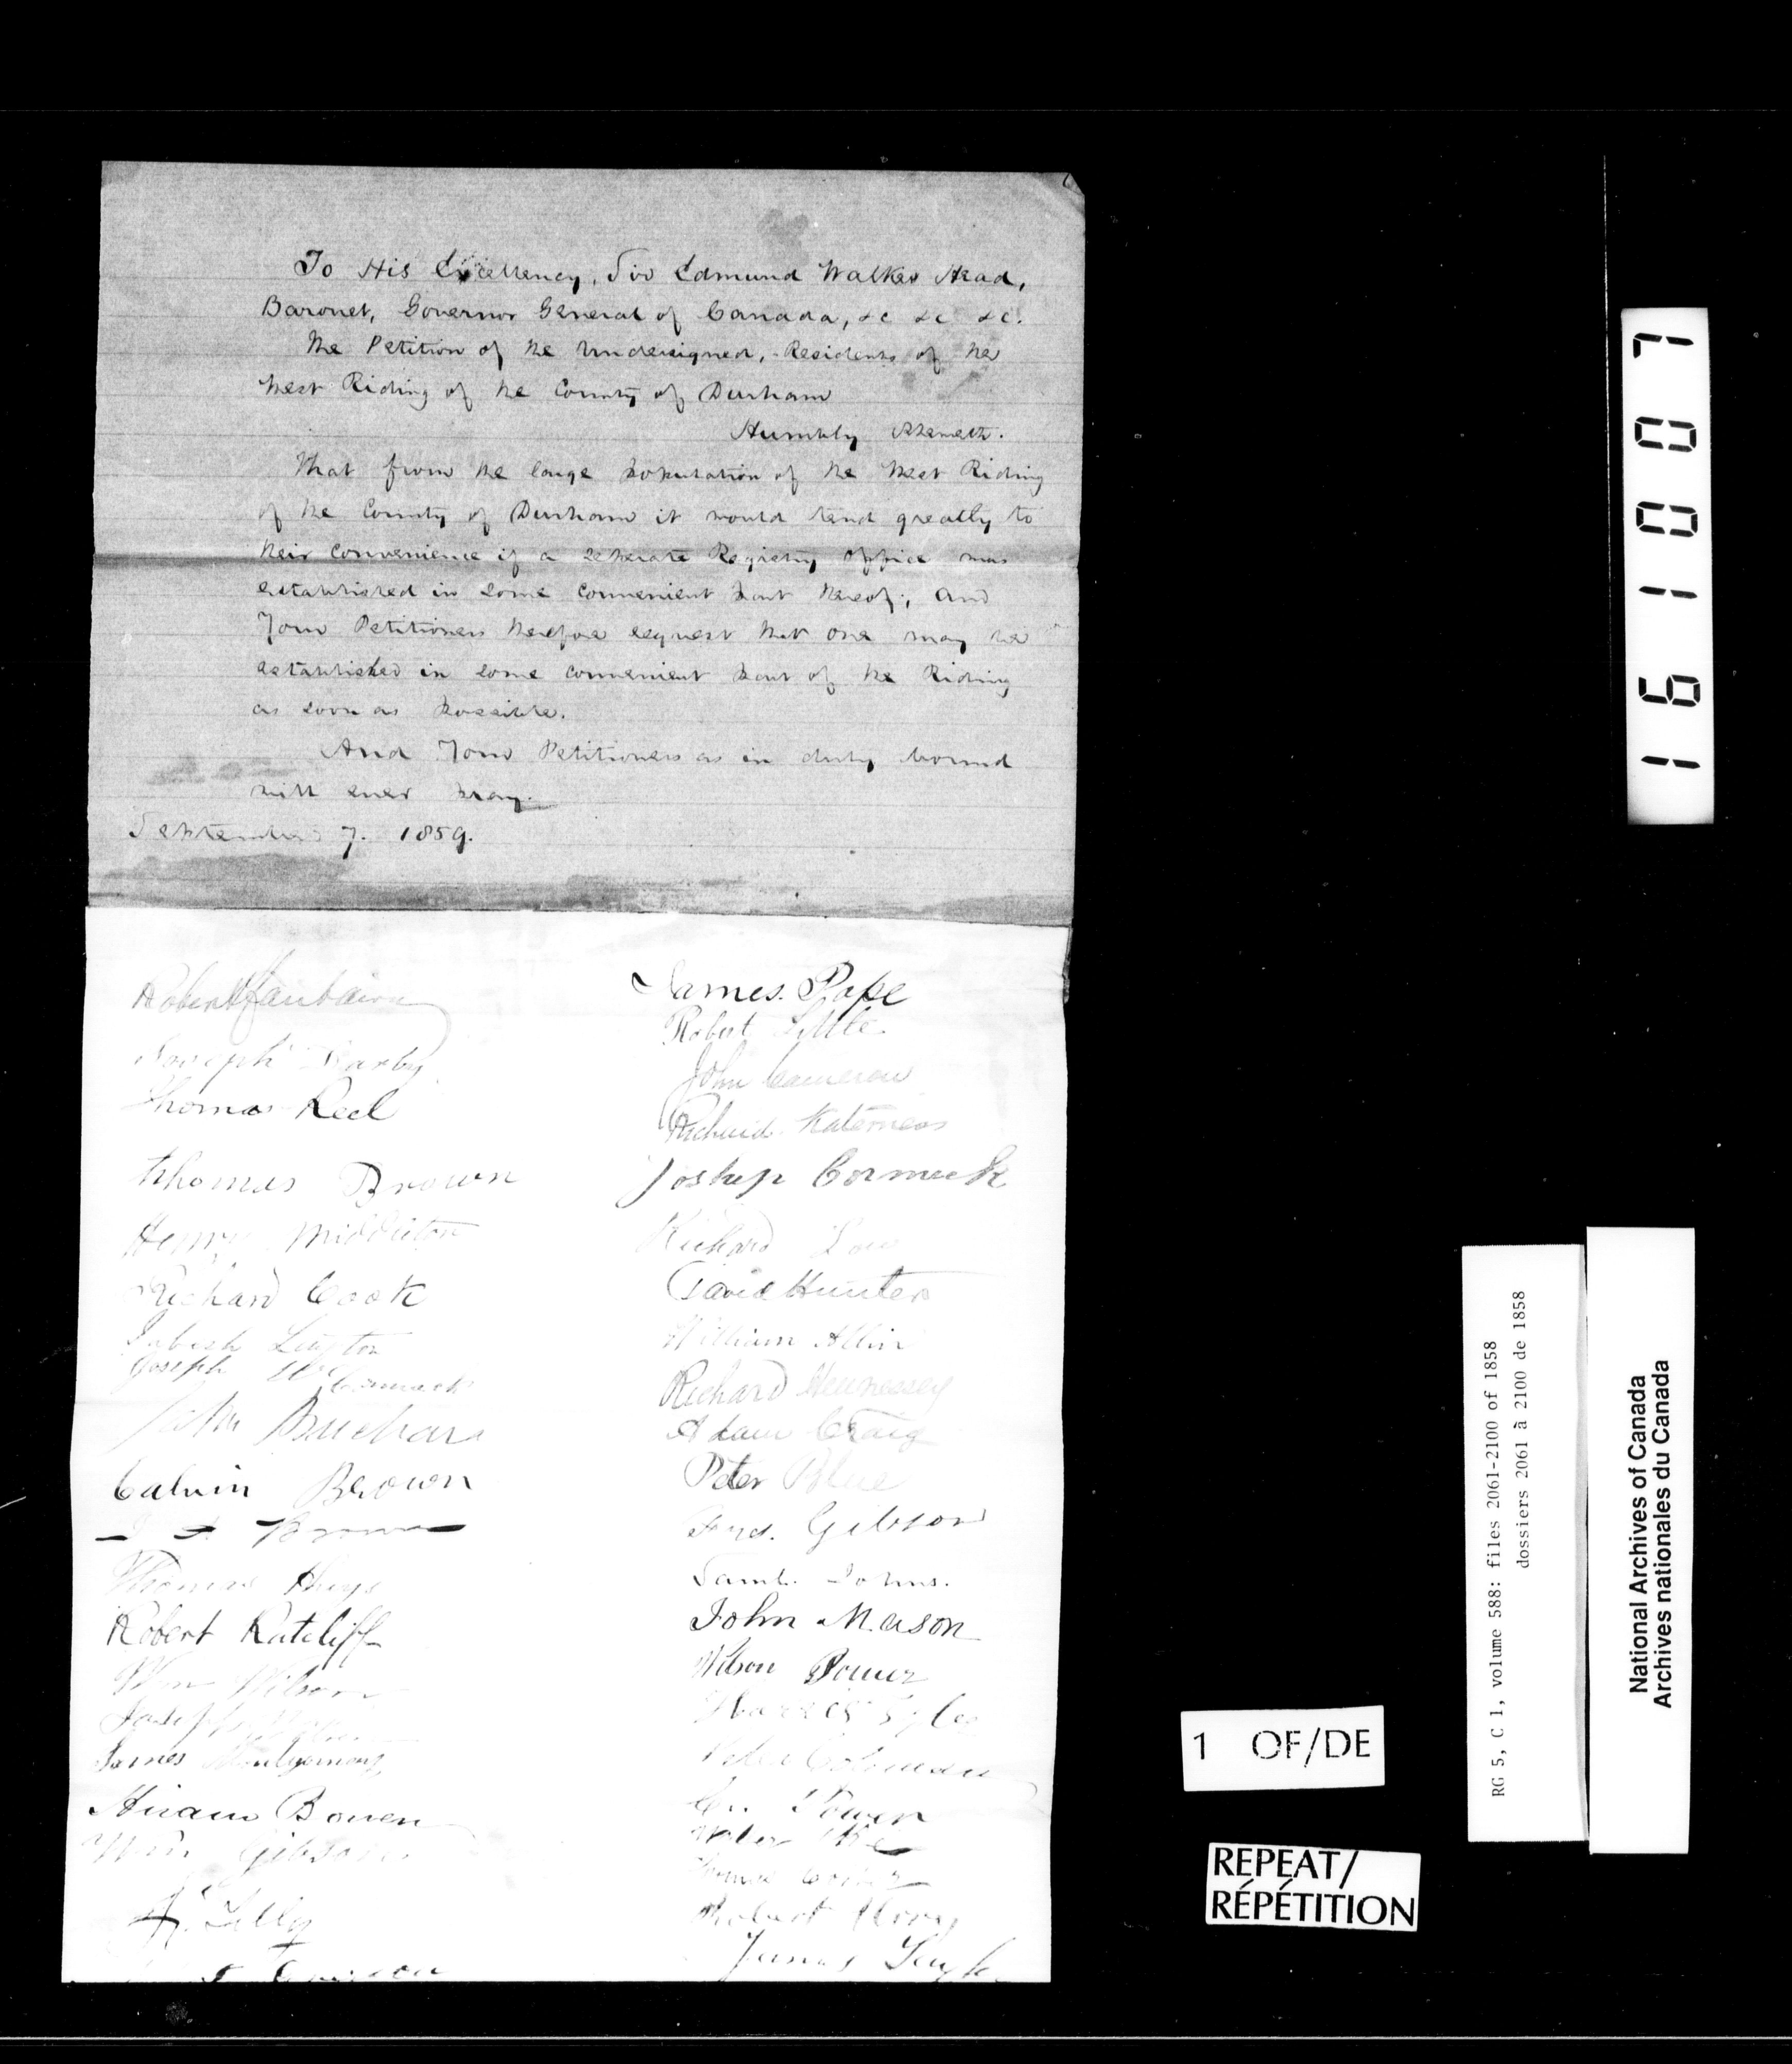 To His Excellency, Sir Edmund Walker Head,
Baronet, Governor General of Canada, &c &c &c.
The Petition of the Undersigned, Residents of the
West Riding of the County of Durham
Humbly Sheweth.
That from the large population of the West Riding
of the County of Durham it would tend greatly to
their convenience if a seperate Registry Office was
established in some convenient part thereof; and
Your Petitioners therefore request that one may be
established in some convenient part of the Riding
as soon as possible.
And Your Petitioners as in duty bound
will ever pray.
September 7. 1859.
Robert Fairbairn
Joseph Darby
Thomas Reel
Thomas Brown
Henry Middleton
Richard Cook
Joseph McCormack
John
Calvin Brown
Brown
Thomas
Robert Ratcliff
Wm Wilson
Joseph
James Montgomery
Hiram Bowen
Wm Gibson
Lilly
James Pope
Robert Little
John Cameron
Richard Katerneas
Joshep Cormeck
Richard
David Hunter
William Allin
Richard Hennessey
Adam Craig
Peter Blue
Gibson
Saml. Johns.
John Mason
Wilson Power
Peter Coleman
Power
Robert
James
161007
RG 5, C 1, volume 588: files 2061-2100 of 1858
dossiers 2061 à 2100 de 1858
National Archives of Canada
Archives nationales du Canada
1 OF/DE
REPEAT/
RÉPÉTITION